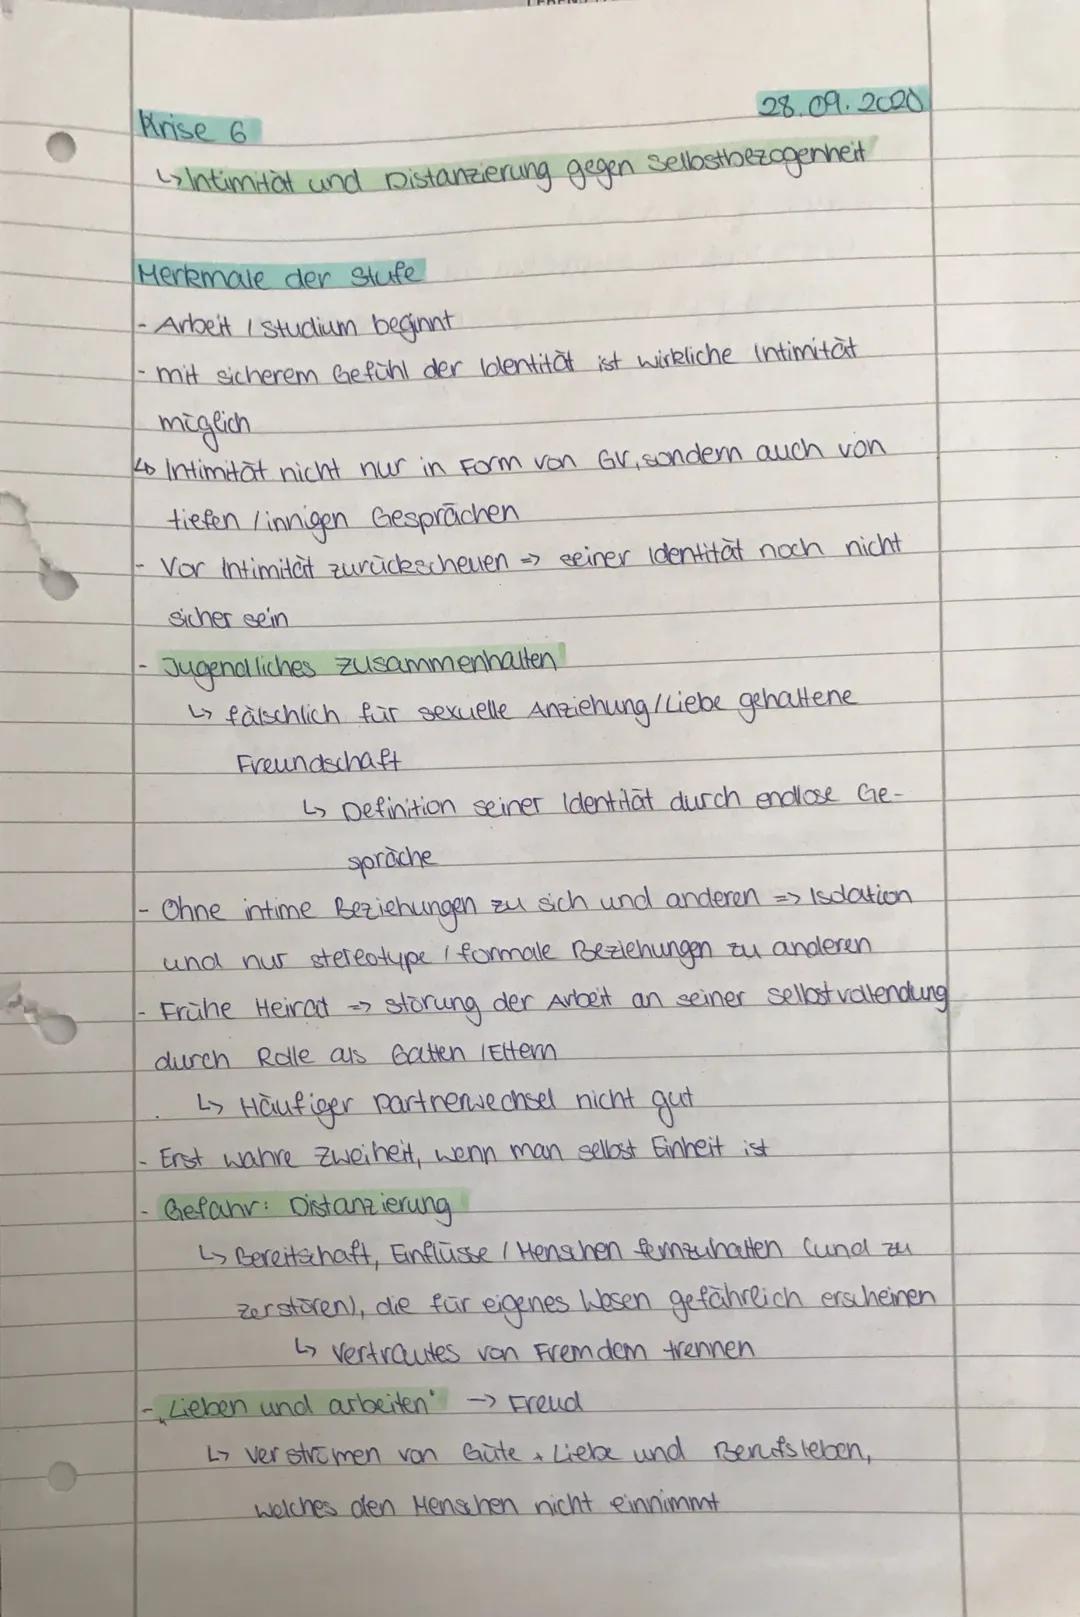 28.09.2020
Krise 6
↳ Intimität und Distanzierung gegen Selbstbezogenheit
Merkmale der Stufe
- Arbeit / Studium beginnt
- mit sicherem Gefühl der Identität ist wirkliche Intimität
möglich
↳ Intimität nicht nur in Form von GV, sondern auch von
tiefen / innigen Gesprächen
- Vor Intimität zurückscheuen => seiner Identität noch nicht
sicher sein
- Jugendliches zusammenhalten
↳ fälschlich für sexuelle Anziehung / Liebe gehaltene
Freundschaft
↳ Definition seiner Identität durch endlose Ge-
spräche
- Ohne intime Beziehungen zu sich und anderen => Isolation
und nur stereotype / formale Beziehungen zu anderen
- Frühe Heirat => Störung der Arbeit an seiner Selbstvollendung
durch Rolle als Gatten / Eltern
↳ Häufiger Partnerwechsel nicht gut
- Erst wahre Zweiheit, wenn man selbst Einheit ist
- Gefahr: Distanzierung
↳ Bereitschaft, Einflüsse / Menschen fernzuhalten (und zu
zerstören), die für eigenes Wesen gefährlich erscheinen
↳ Vertrautes von Fremdem trennen
- „Lieben und arbeiten" -> Freud
↳ Verströmen von Güte + Liebe und Berufsleben,
welches den Menschen nicht einnimmt